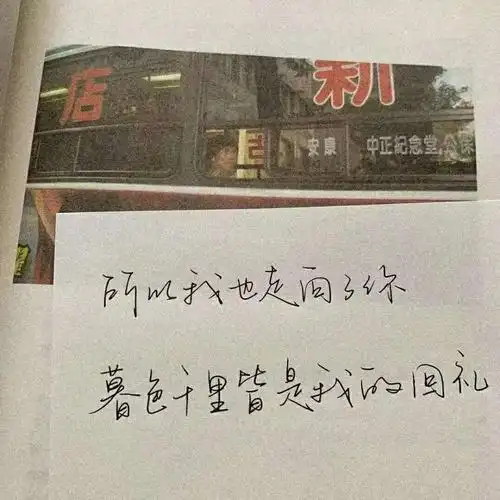 店
新
安康 中正纪念堂.公保
所以我也走向了你
暮色千里皆是我的回礼